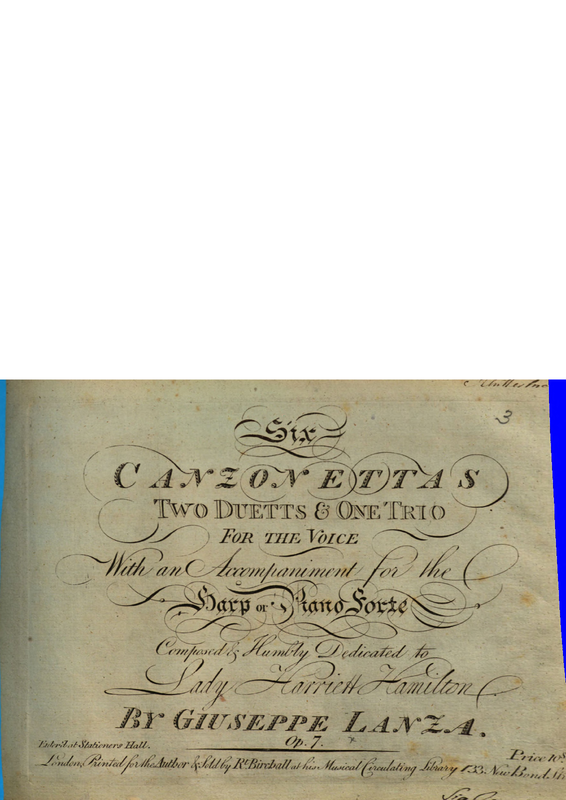 3
Six
CANZONETTAS
TWO DUETTS & ONE TRIO
FOR THE VOICE
With an Accompaniment for the
Harp or Piano Forte
Composed & Humbly Dedicated to
Lady Harriett Hamilton
BY GIUSEPPE LANZA.
Op. 7.
Enter'd at Stationers Hall.
Price 10s
London, Printed for the Author & Sold by Rt. Birchall at his Musical Circulating Library 133, New Bond